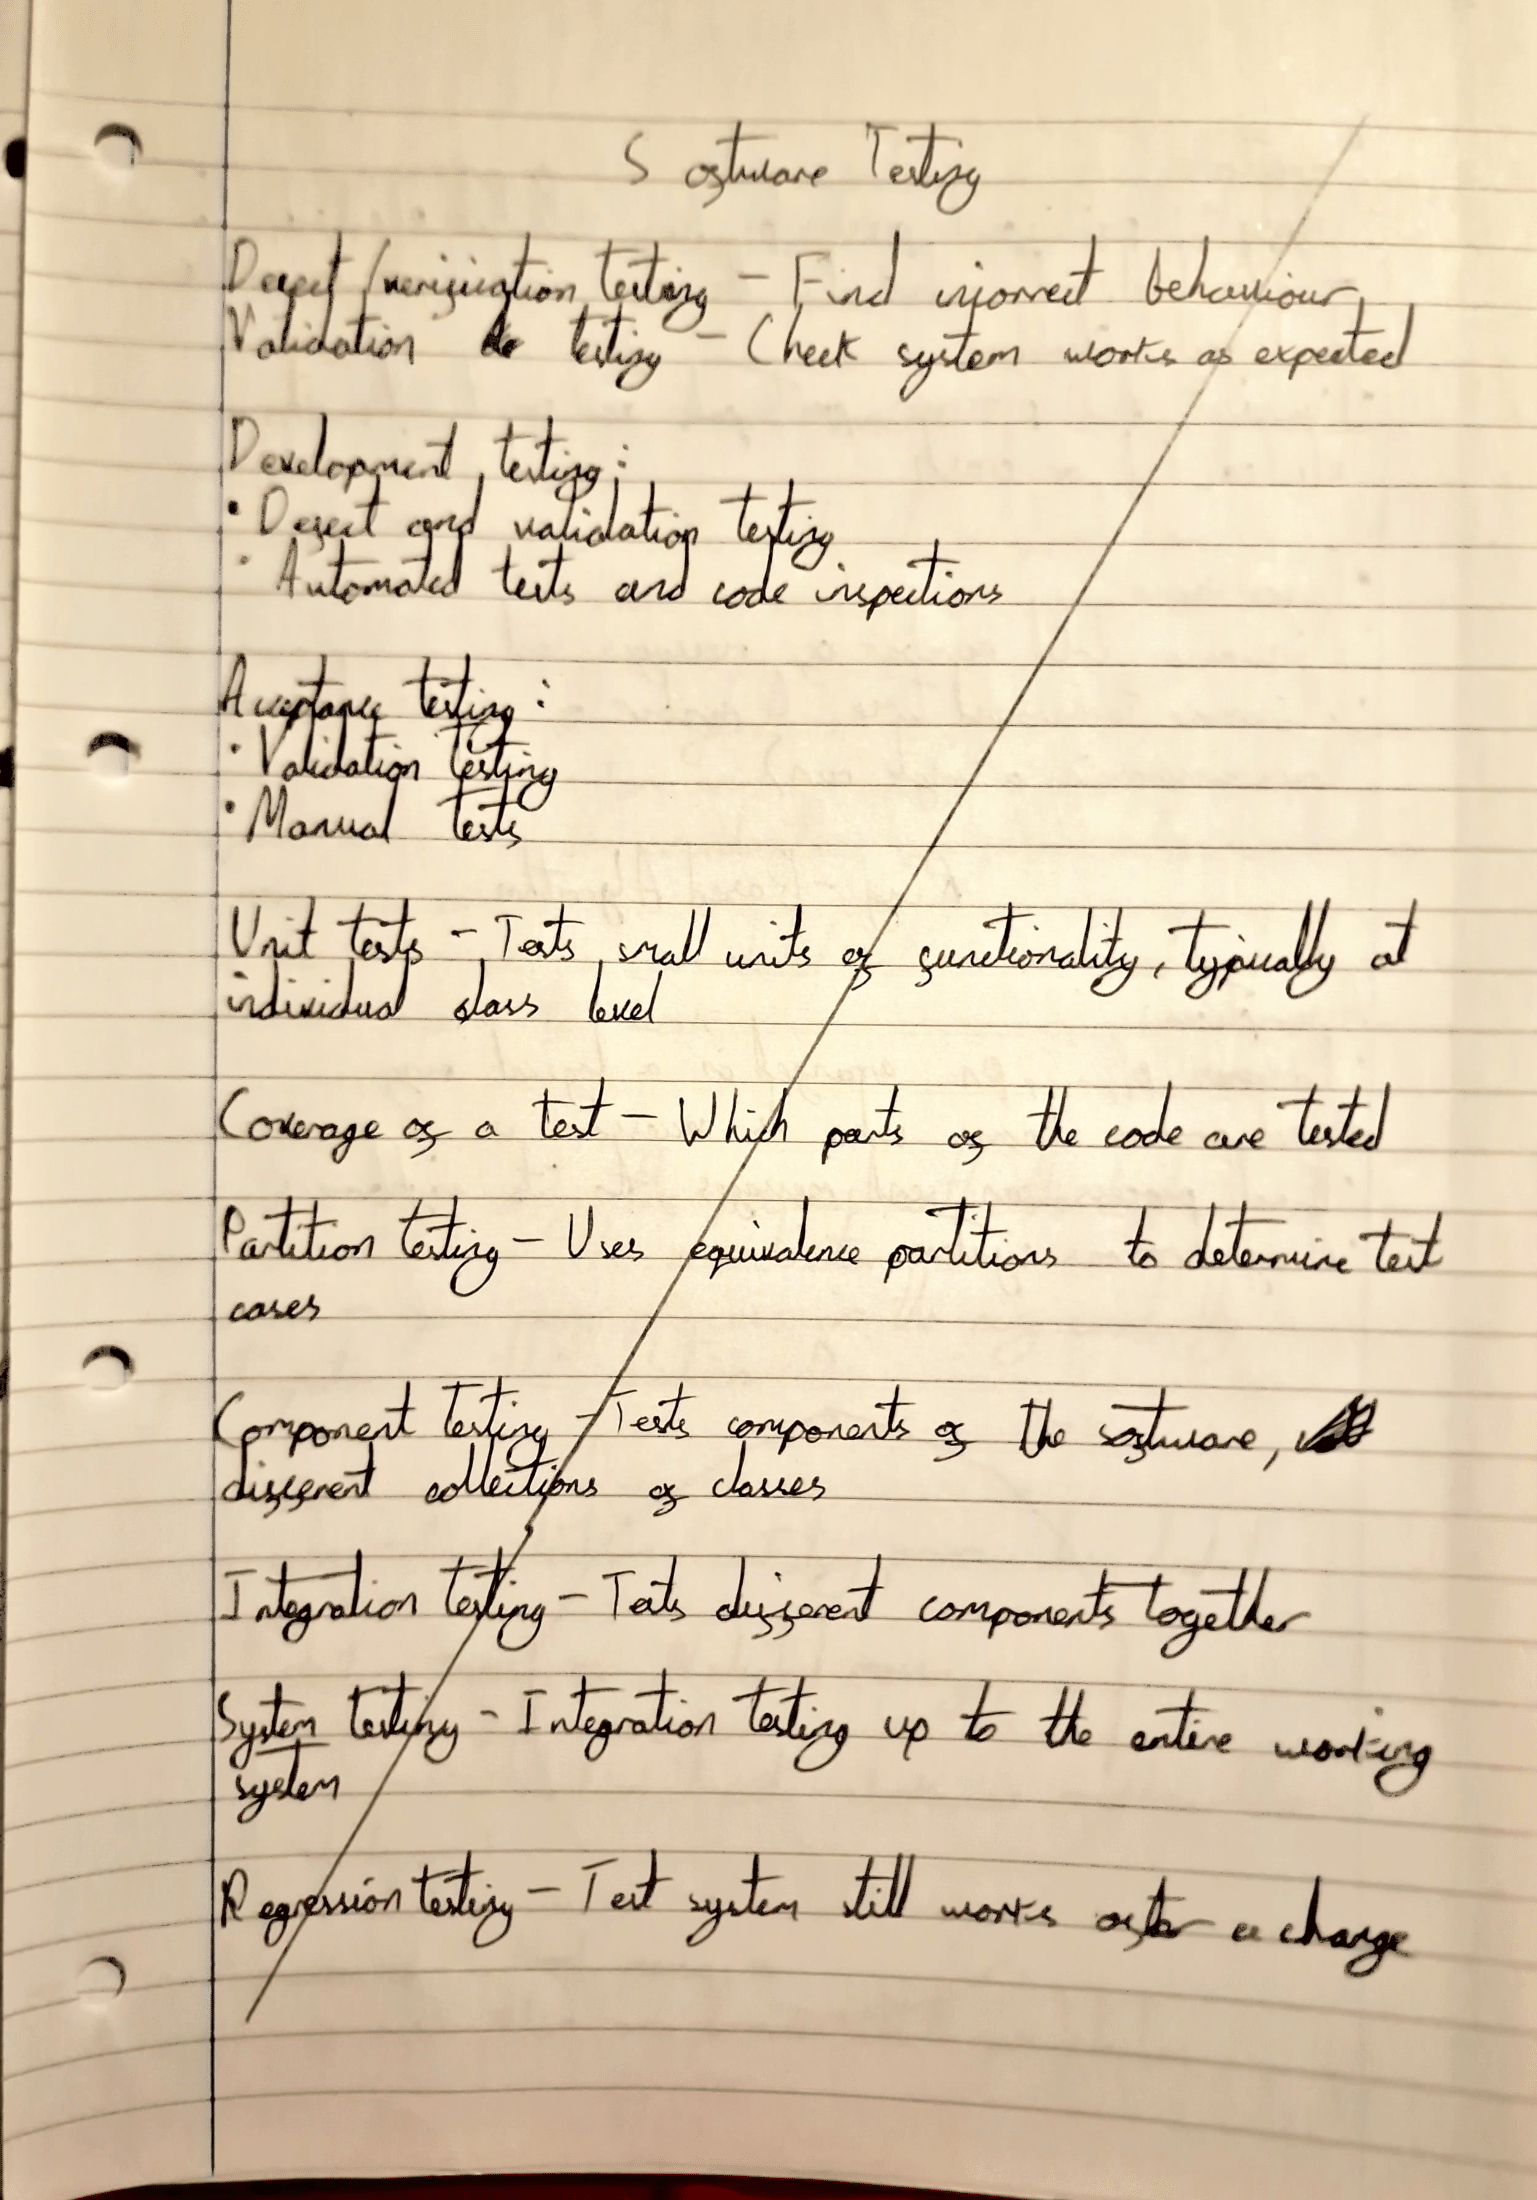 Software Testing
Defect/verification testing - Find incorrect behaviour
Validation testing - Check system works as expected
Development testing:
• Defect and validation testing
• Automated tests and code inspections
Acceptance testing:
• Validation testing
• Manual tests
Unit tests - Tests small units of functionality, typically at
individual class level
Coverage of a test - Which parts of the code are tested
Partition testing - Uses equivalence partitions to determine test
cases
Component testing - Tests components of the software,
different collections of classes
Integration testing - Tests different components together
System testing - Integration testing up to the entire working
system
Regression testing - Test system still works after a change